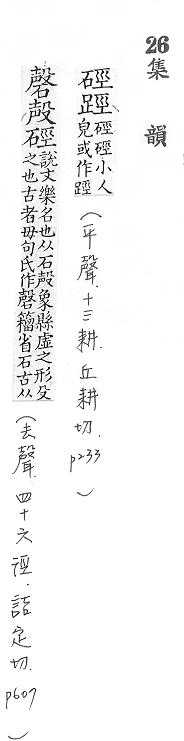 26
集韻
硜䂔硜硜小人皃或作䂔(平聲.十三耕.丘耕切.p233)
磬殸硜說文樂名也从石殸象縣虡之形殳之也古者毋句氏作磬籀省石古从(去聲.四十六徑.詰定切.p607)